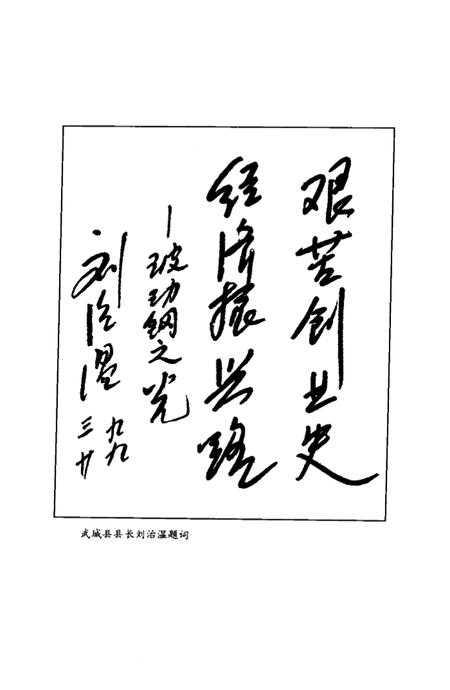 艰苦创业史
经济振兴路
—玻动钢之光
刘治温
九九
三廿
武城县县长刘治温题词